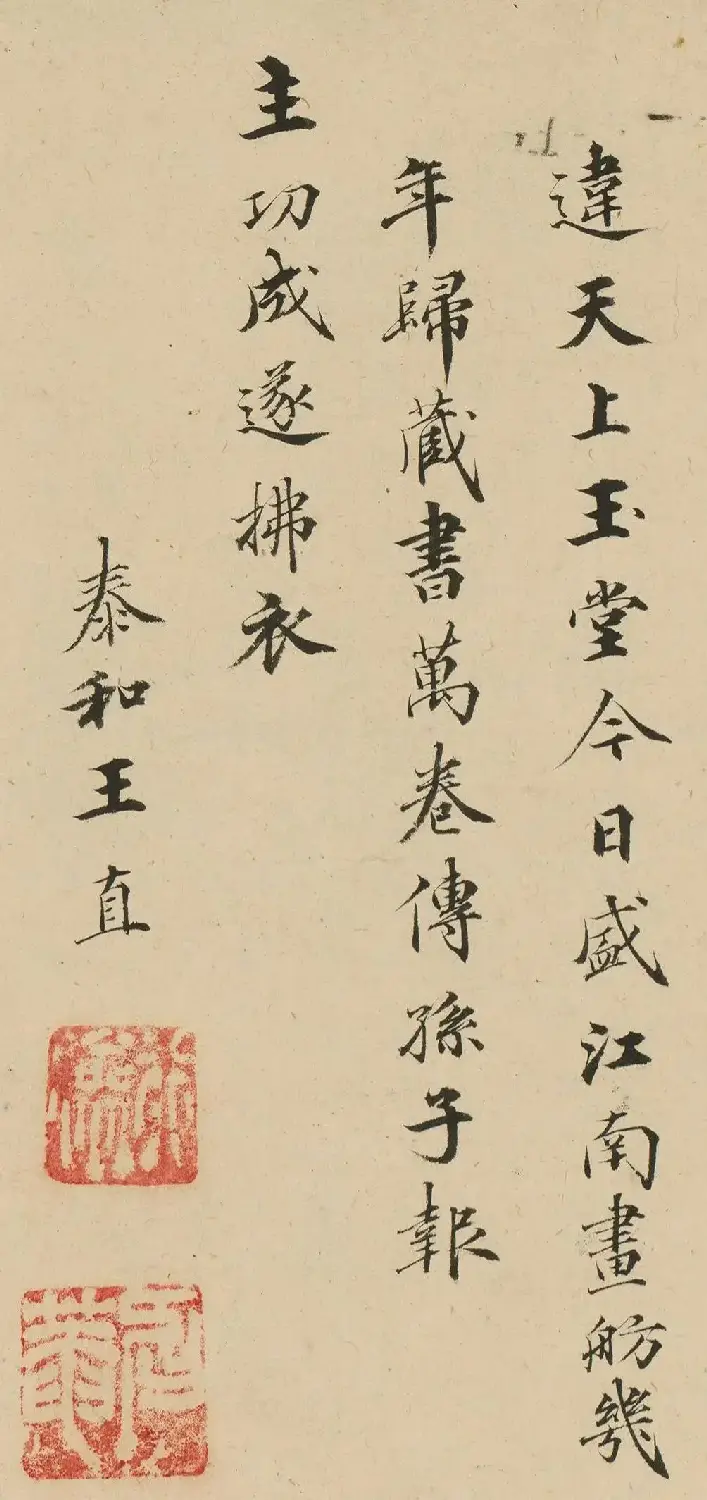 違天上玉堂今日盛江南畫舫幾
年歸藏書萬卷傳孫子報
主功成遂拂衣
泰和王直